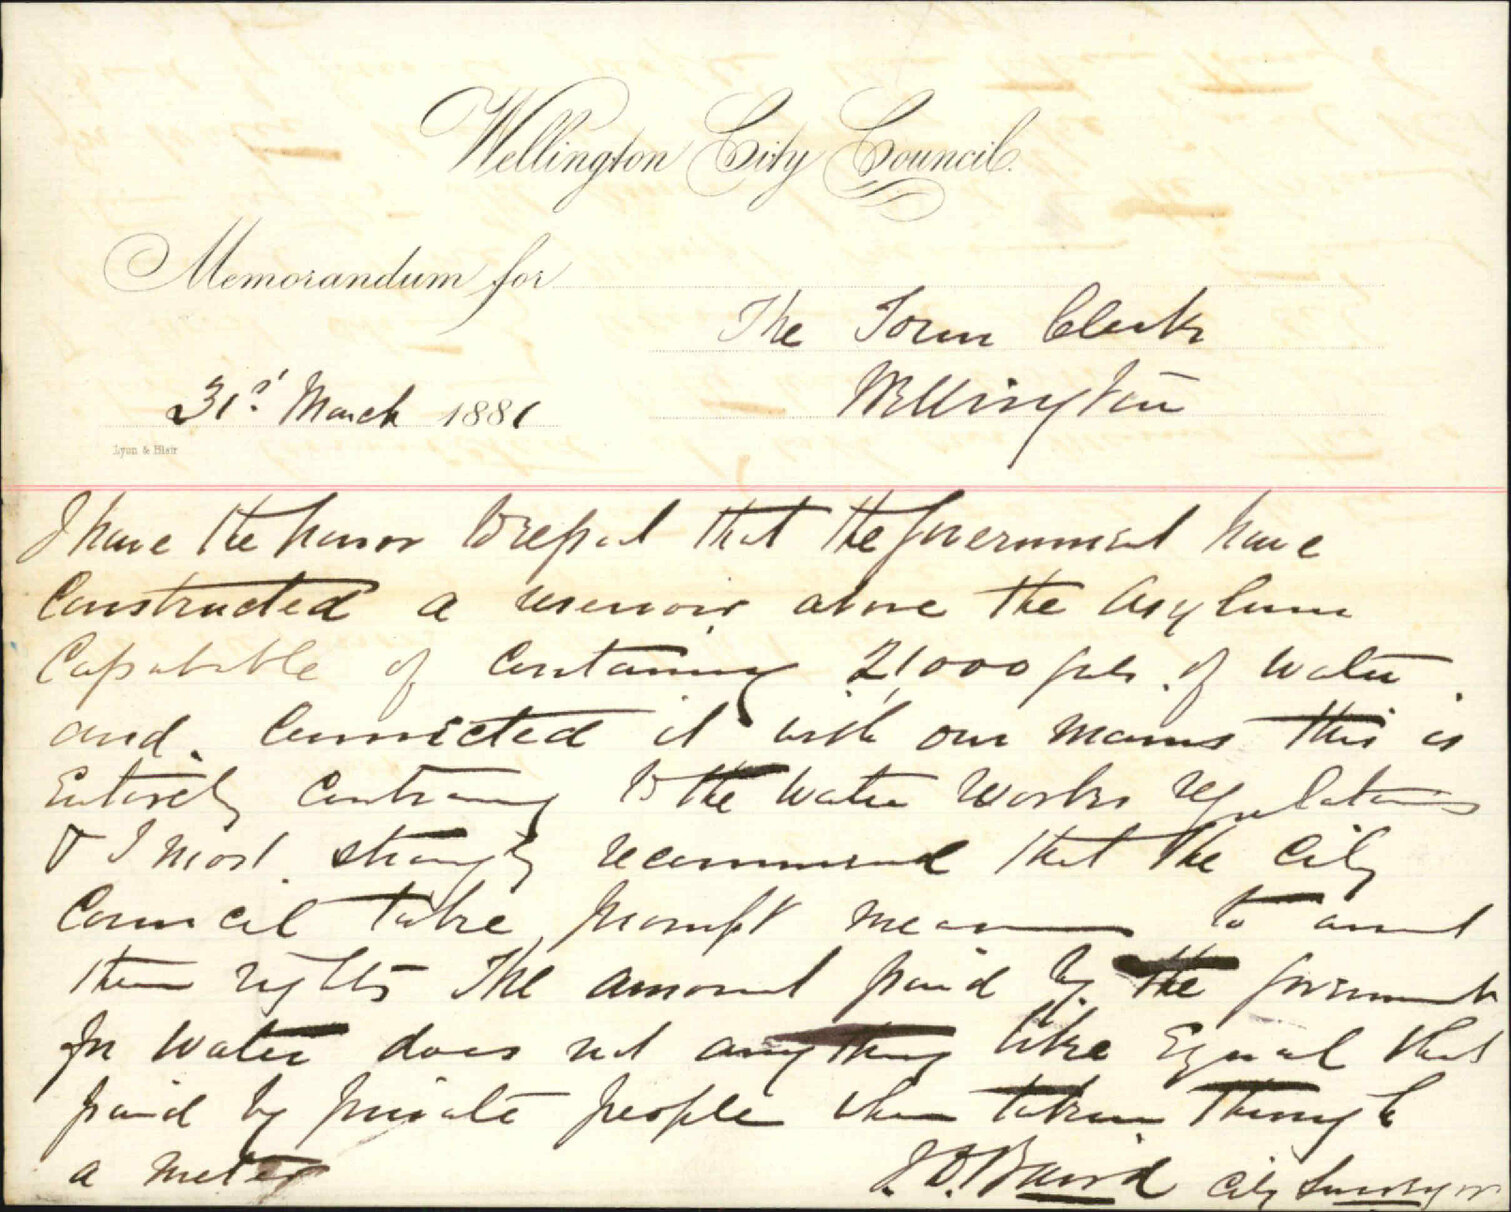 Wellington City Council.
Memorandum for
The Town Clerk
Wellington
31st March 1881
Lyon & Blair
I have the honor to report that the Government have
Constructed a reservoir above the Asylum
Capabable of containing 21,000 gals. of water
and connected it with our mains this is
Entirely contrary to the Water Works regulations
& I most strongly recommend that the City
Council take prompt means to assert
their rights The amount paid by the Government
for water does not anything like Equal that
paid by private people when taken through
a meter
J. D. Baird City Surveyor